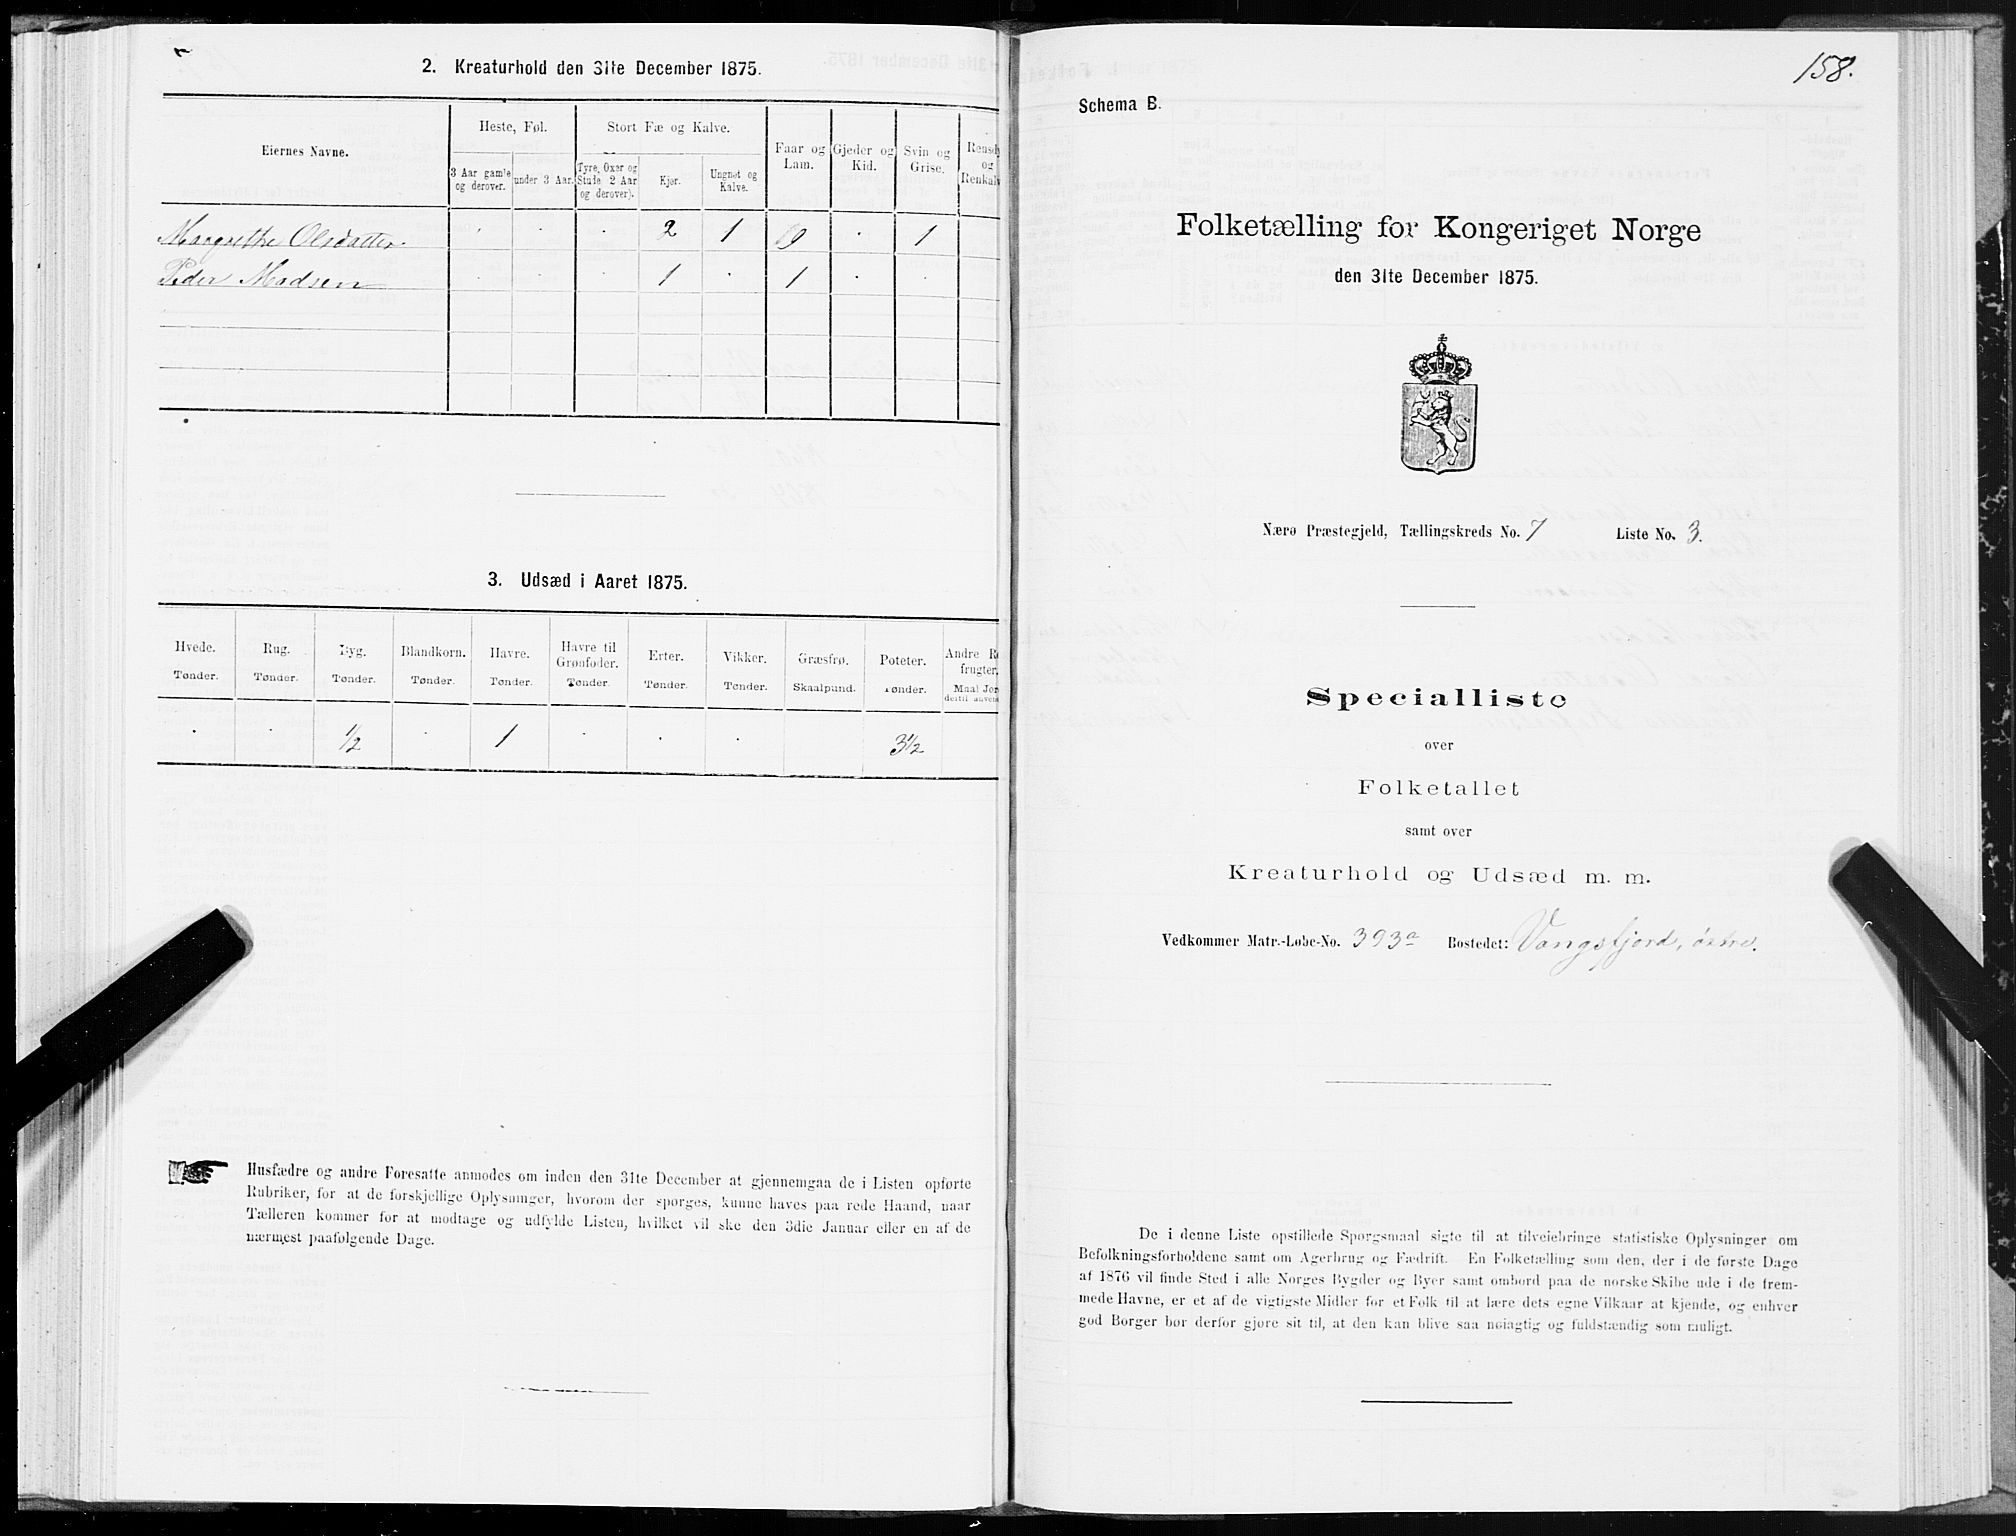 2. Kreaturhold den 31te December 1875.
Eiernes Navne.
Heste, Føl.
Stort Fæ og Kalve.
Faar og Lam.
Gjeder og Kid.
Svin og Grise.
og
3 Aar gamle og derover.
under 3 Aar.
Tyre, Oxer og Stude 2 Aar og derover).
Kjør.
Ungnøt og Kalve.
Margrethe Olsdatter . . . 2 1 . 1
Peder Madsen . . . 1 . 1 . .
3. Udsæd i Aaret 1875.
Hvede. Rug. Byg. Blandkorn. Havre. Havre til Grønfoder. Erter. Vikker. Græsfrø. Poteter. Andre
Tønder. Tønder. Tønder. Tønder. Tønder. Tønder. Tønder. Tønder. Skaalpund. Tønder. Maal
. . 1/2 . 1 . . . 3 1/2
Husfædre og andre Foresatte anmodes om inden den 31te December at gjennemgaa de i Listen opførte
Rubriker, for at de forskjellige Oplysninger, hvorom der spørges, kunne haves paa rede Haand, naar
Tælleren kommer for at modtage og udfylde Listen, hvilket vil ske den 3die Januar eller en af de
nærmest paafølgende Dage.
158.
Schema B.
Folketælling for Kongeriget Norge
den 31te December 1875.
Nærø Præstegjeld, Tællingskreds No. 7 Liste No. 3.
Specialliste
over
Folketallet
samt over
Kreaturhold og Udsæd m. m.
Vedkommer Matr.-Løbe-No. 393a Bostedet: Vangsfjord, østre.
De i denne Liste opstillede Spørgsmaal sigte til at tilveiebringe statistiske Oplysninger om
Befolkningsforholdene samt om Agerbrug og Fædrift. En Folketælling som den, der i de første Dage
af 1876 vil finde Sted i alle Norges Bygder og Byer samt ombord paa de norske Skibe ude i de frem-
mede Havne, er et af de vigtigste Midler for et Folk til at lære dets egne Vilkaar at kjende, og enhver
god Borger bør derfor gjøre sit til, at den kan blive saa nøiagtig og fuldstændig som muligt.